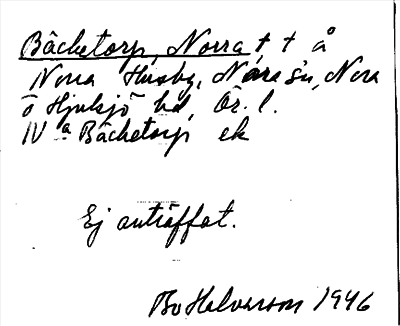 Bäcketorp, Norra † † å
Norra Husby, Nora sn, Nora
o Hjulsjö hd, Ör. l.
N:a Bäcketorp ek
Ej anträffat.
Bo Halvarson 1946